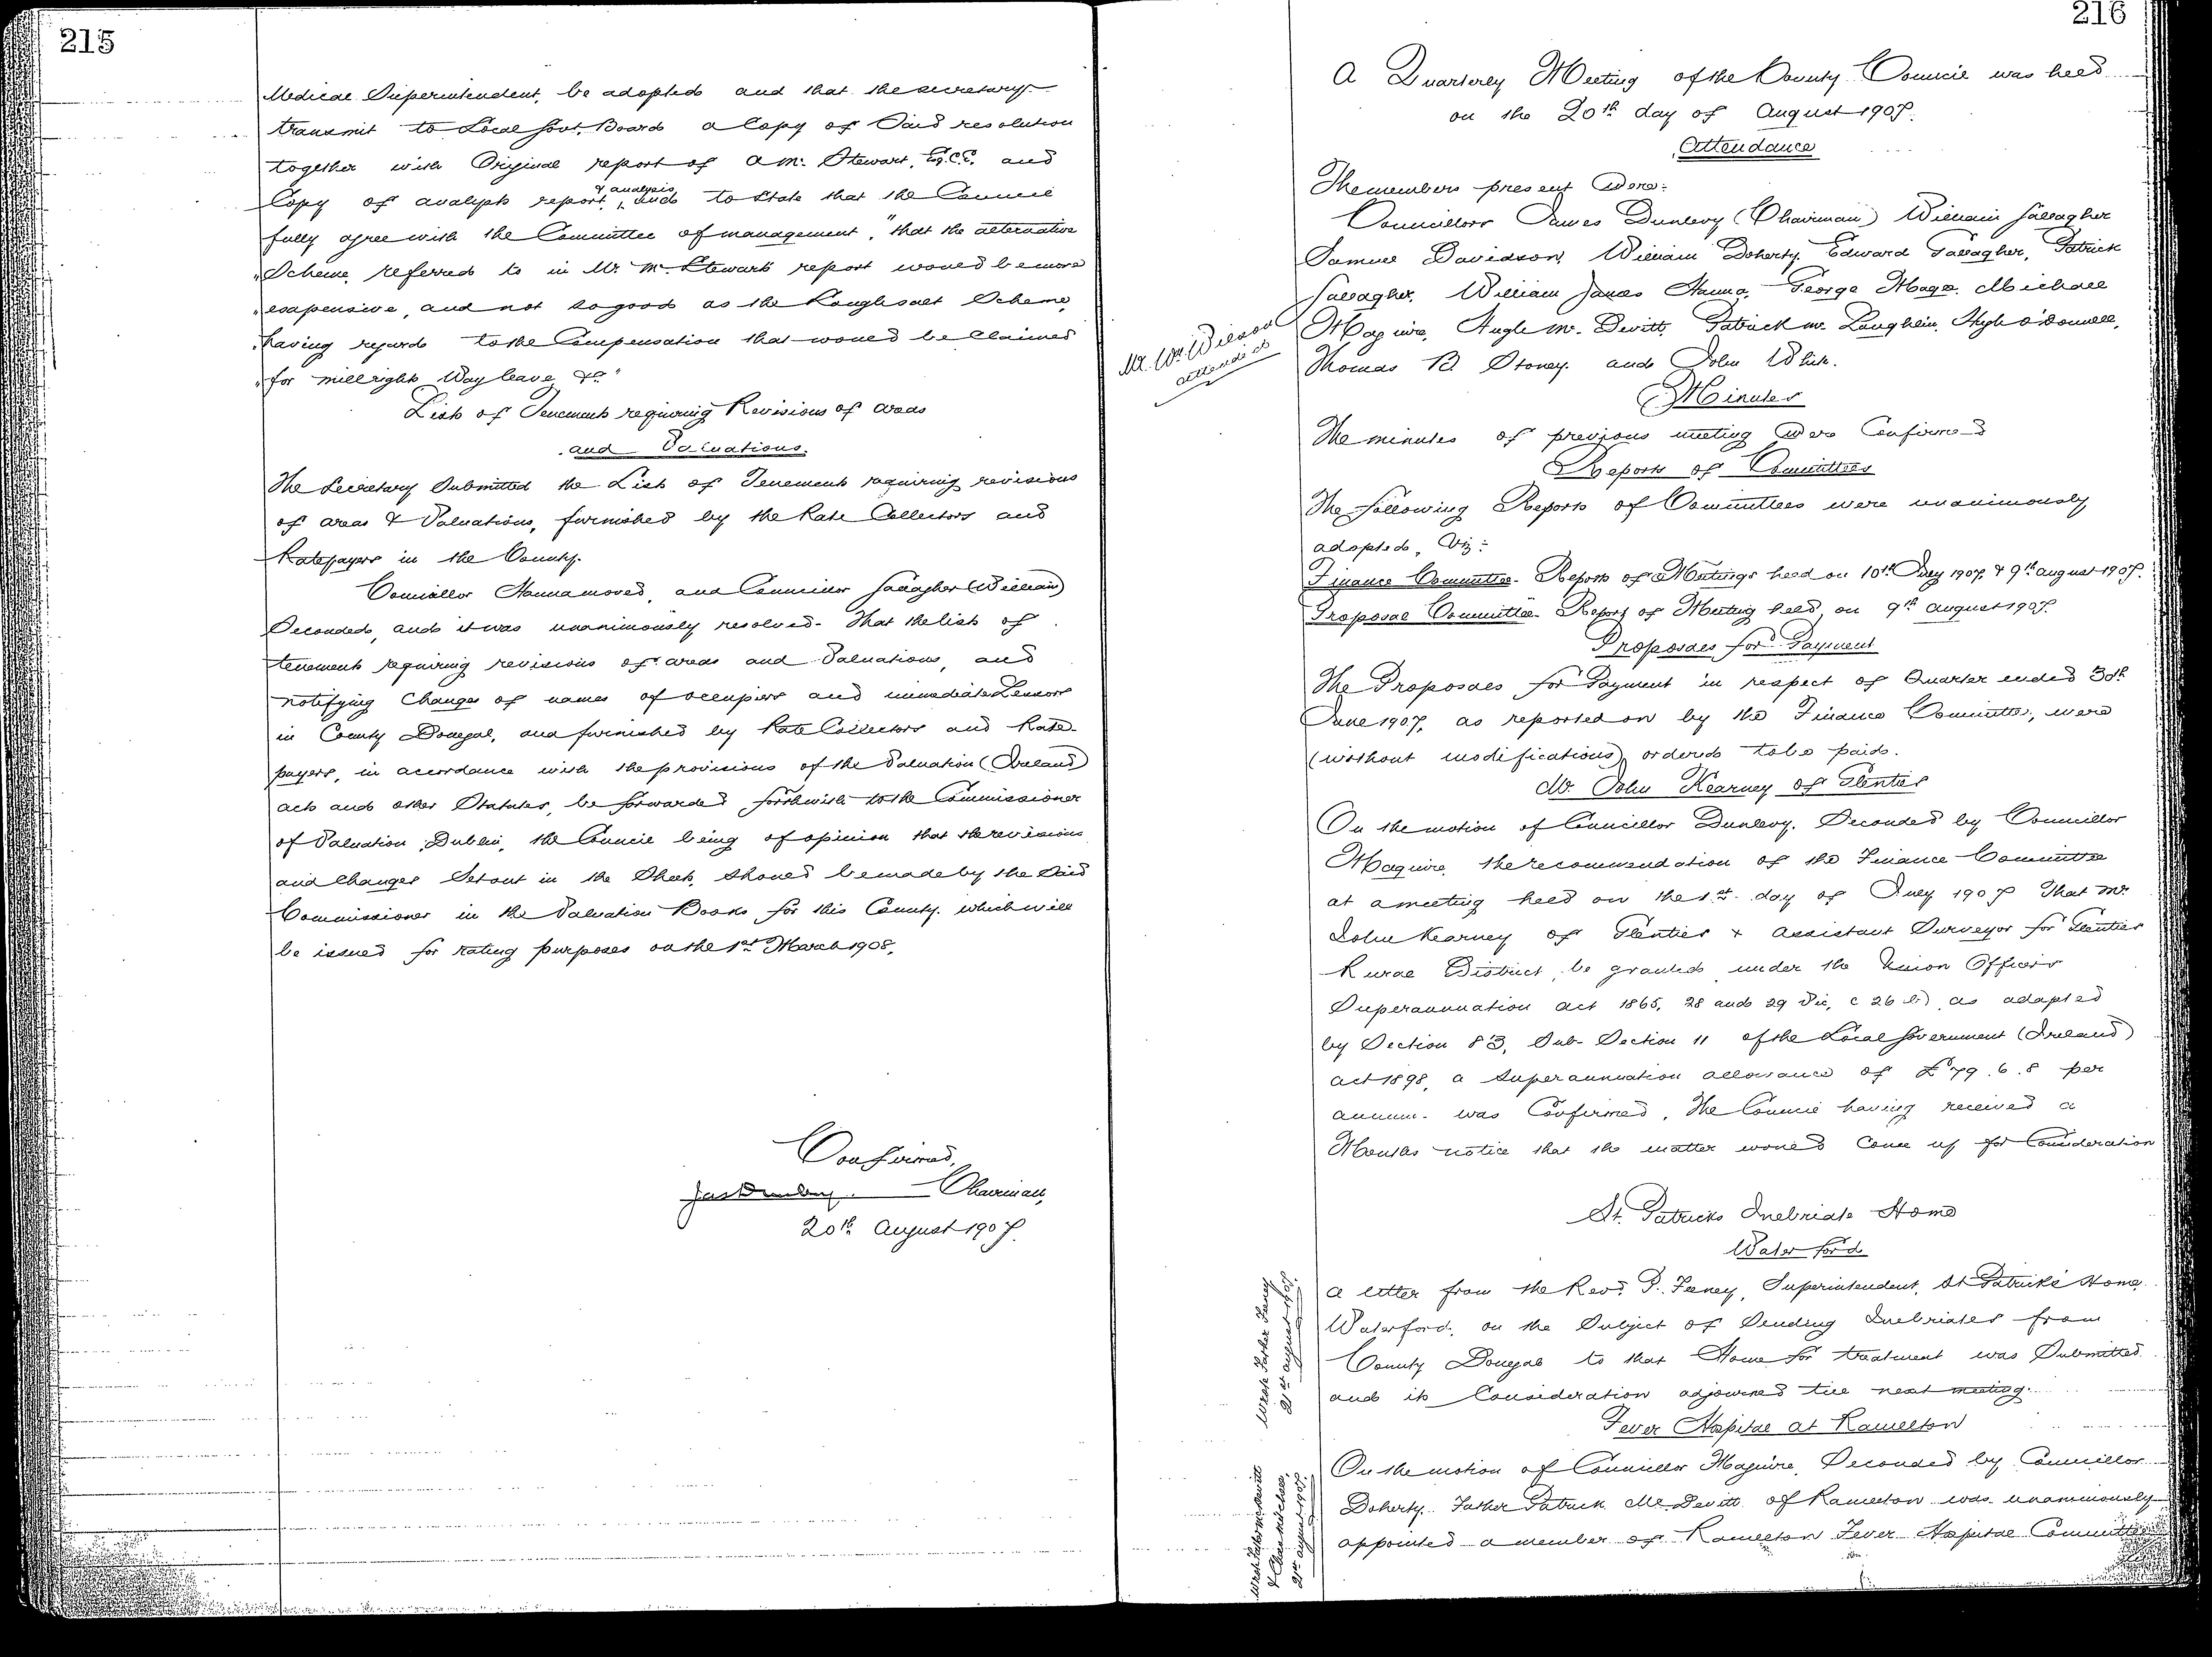 215
Medical Superintendent, be adopted and that the secretary
transmit to Local Govt. Board a Copy of Said resolution
together with Original report of A M. Stewart, and
Copy of analysts report & analysis, and to State that the Council
fully agree with the Committee of management, "that the alternative
"Scheme, referred to in Mr. M. Stewart's report would be more
"expensive, and not so good as the Loughsalt Scheme,
"having regard to the Compensation that would be Claimed
"for millrights Way leave, &c"
List of Tenements requiring Revisions of areas
and Valuations.
The Secretary Submitted the List of Tenements requiring revisions
of areas & Valuations, furnished by the Rate Collectors and
Ratepayers in the County.
Councillor Hanna moved, and Councillor Gallagher (William)
Seconded, and it was unanimously resolved - That the list of
tenements requiring revisions of areas and Valuations, and
notifying Changes of names of occupiers and immediate Lessors
in County Donegal, and furnished by Rate Collectors and Rate-
payers, in accordance with the provisions of the Valuation (Ireland)
acts and other Statutes, be forwarded forthwith to the Commissioner
of Valuation, Dublin, the Council being of opinion that the revisions
and Changes Set out in the Sheets, Should be made by the Said
Commissioner in the Valuation Books for this County which will
be issued for rating purposes on the 1st March 1908.
Confirmed,
Jas Dunlevy. Chairman,
20th August 1907.
216
A Quarterly Meeting of the County Council was held
on the 20th day of August 1907.
Attendance
The members present Were:
Councillors James Dunlevy (Chairman) William Gallagher
Samuel Davidson, William Doherty, Edward Gallagher, Patrick
Gallagher, William James Hanna, George Magee, Michael
Maguire, Hugh McDevitt, Patrick McLaughlin, Hugh O'Donnell,
Thomas B Stoney and John White.
Mr. Wm Wilson
attended also
Minutes
The minutes of previous meeting Were Confirmed
Reports of Committees
The following Reports of Committees were unanimously
adopted, Viz:
Finance Committee - Reports of Meetings held on 10th July 1907, & 9th August 1907.
Proposal Committee - Report of Meeting held on 9th August 1907.
Proposals for Payment
The Proposals for Payment in respect of Quarter ended 30th
June 1907, as reported on by the Finance Committee, were
(without modifications) ordered to be paid.
Mr. John Kearney of Glenties
On the motion of Councillor Dunlevy, Seconded by Councillor
Maguire, the recommendation of the Finance Committee
at a meeting held on the 1st day of July 1907 That Mr
John Kearney of Glenties & Assistant Surveyor for Glenties
Rural District, be granted under the Union Officers
Superannuation Act 1865, 28 and 29 Vic, c 26 as adapted
by Section 83, Sub-Section 11 of the Local Government (Ireland)
Act 1898, a Superannuation allowance of £79.6.8 per
annum - was Confirmed, The Council having received a
Months notice that the matter would Come up for Consideration
St. Patricks Inebriate Home
Waterford
A letter from the Revd. P. Feeney, Superintendent, St Patrick's Home,
Waterford, on the Subject of Sending Inebriates from
County Donegal to that Home for treatment was Submitted
and its Consideration adjourned till next meeting.
Wrote Father Feeney
21st August 1907.
Fever Hospital at Ramelton
On the motion of Councillor Maguire, Seconded by Councillor
Doherty, Father Patrick McDevitt of Ramelton was unanimously
appointed a member of Ramelton Fever Hospital Committee
Wrote Father McDevitt
21st August 1907.